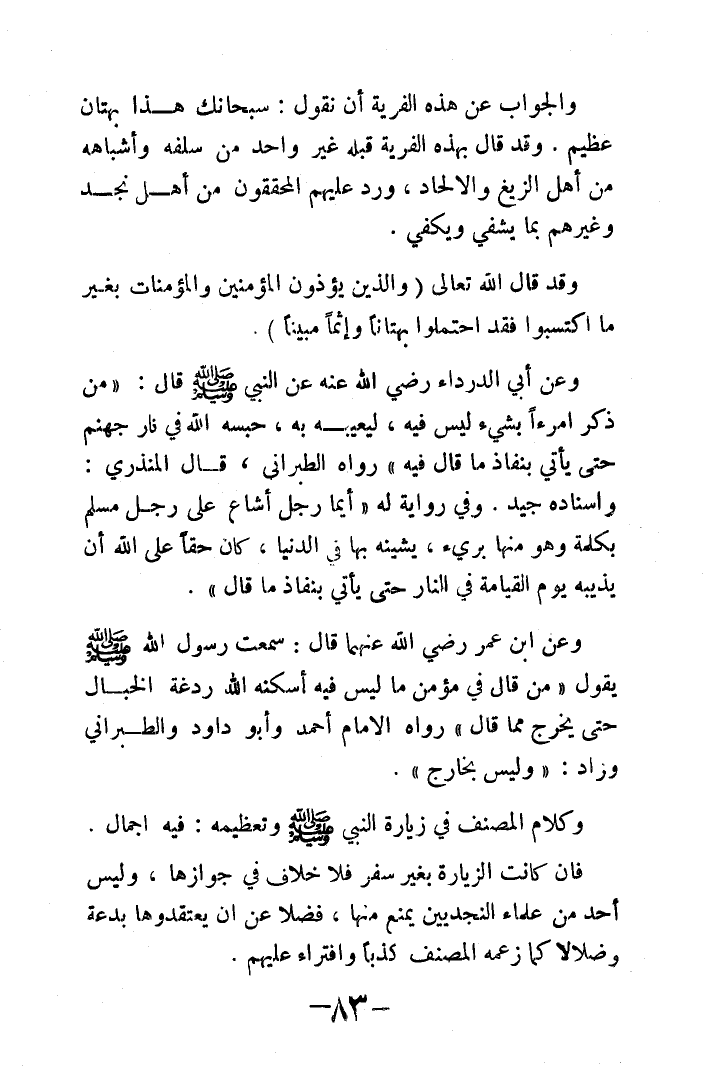 والجواب عن هذه الفرية أن نقول : سبحانك هـــذا بهتان
عظيم . وقد قال بهذه الفرية قبله غير واحد من سلفه وأشباهه
من أهل الزيغ والالحاد ، ورد عليهم المحققون من أهــل نجــد
وغيرهم بما يشفي ويكفي .
وقد قال الله تعالى ( والذين يؤذون المؤمنين والمؤمنات بغـير
ما اكتسبوا فقد احتملوا بهتاناً وإثماً مبيناً ) .
وعن أبي الدرداء رضي الله عنه عن النبي ﷺ قال : « من
ذكر امرءاً بشيء ليس فيه ، ليعيبــه به ، حبسه الله في نار جهنم
حتى يأتي بنفاذ ما قال فيه » رواه الطبراني ، قــال المنذري :
واسناده جيد . وفي رواية له « أيما رجل أشاع على رجـل مسلم
بكلمة وهو منها بريء ، يشينه بها في الدنيا ، كان حقاً على الله أن
يذيبه يوم القيامة في النار حتى يأتي بنفاذ ما قال » .
وعن ابن عمر رضي الله عنهما قال : سمعت رسول الله ﷺ
يقول « من قال في مؤمن ما ليس فيه أسكنه الله ردغة الخبــال
حتى يخرج مما قال » رواه الامام أحمد وأبو داود والطــبراني
وزاد : « وليس بخارج » .
وكلام المصنف في زيارة النبي ﷺ وتعظيمه : فيه اجمال .
فان كانت الزيارة بغير سفر فلا خلاف في جوازها ، وليس
أحد من علماء النجديين يمنع منها ، فضلا عن ان يعتقدوها بدعة
وضلالا كما زعمه المصنف كذباً وافتراء عليهم .
-٨٣-